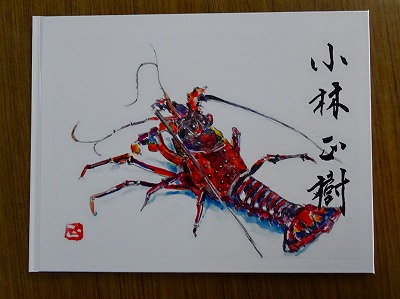 小林正樹
正